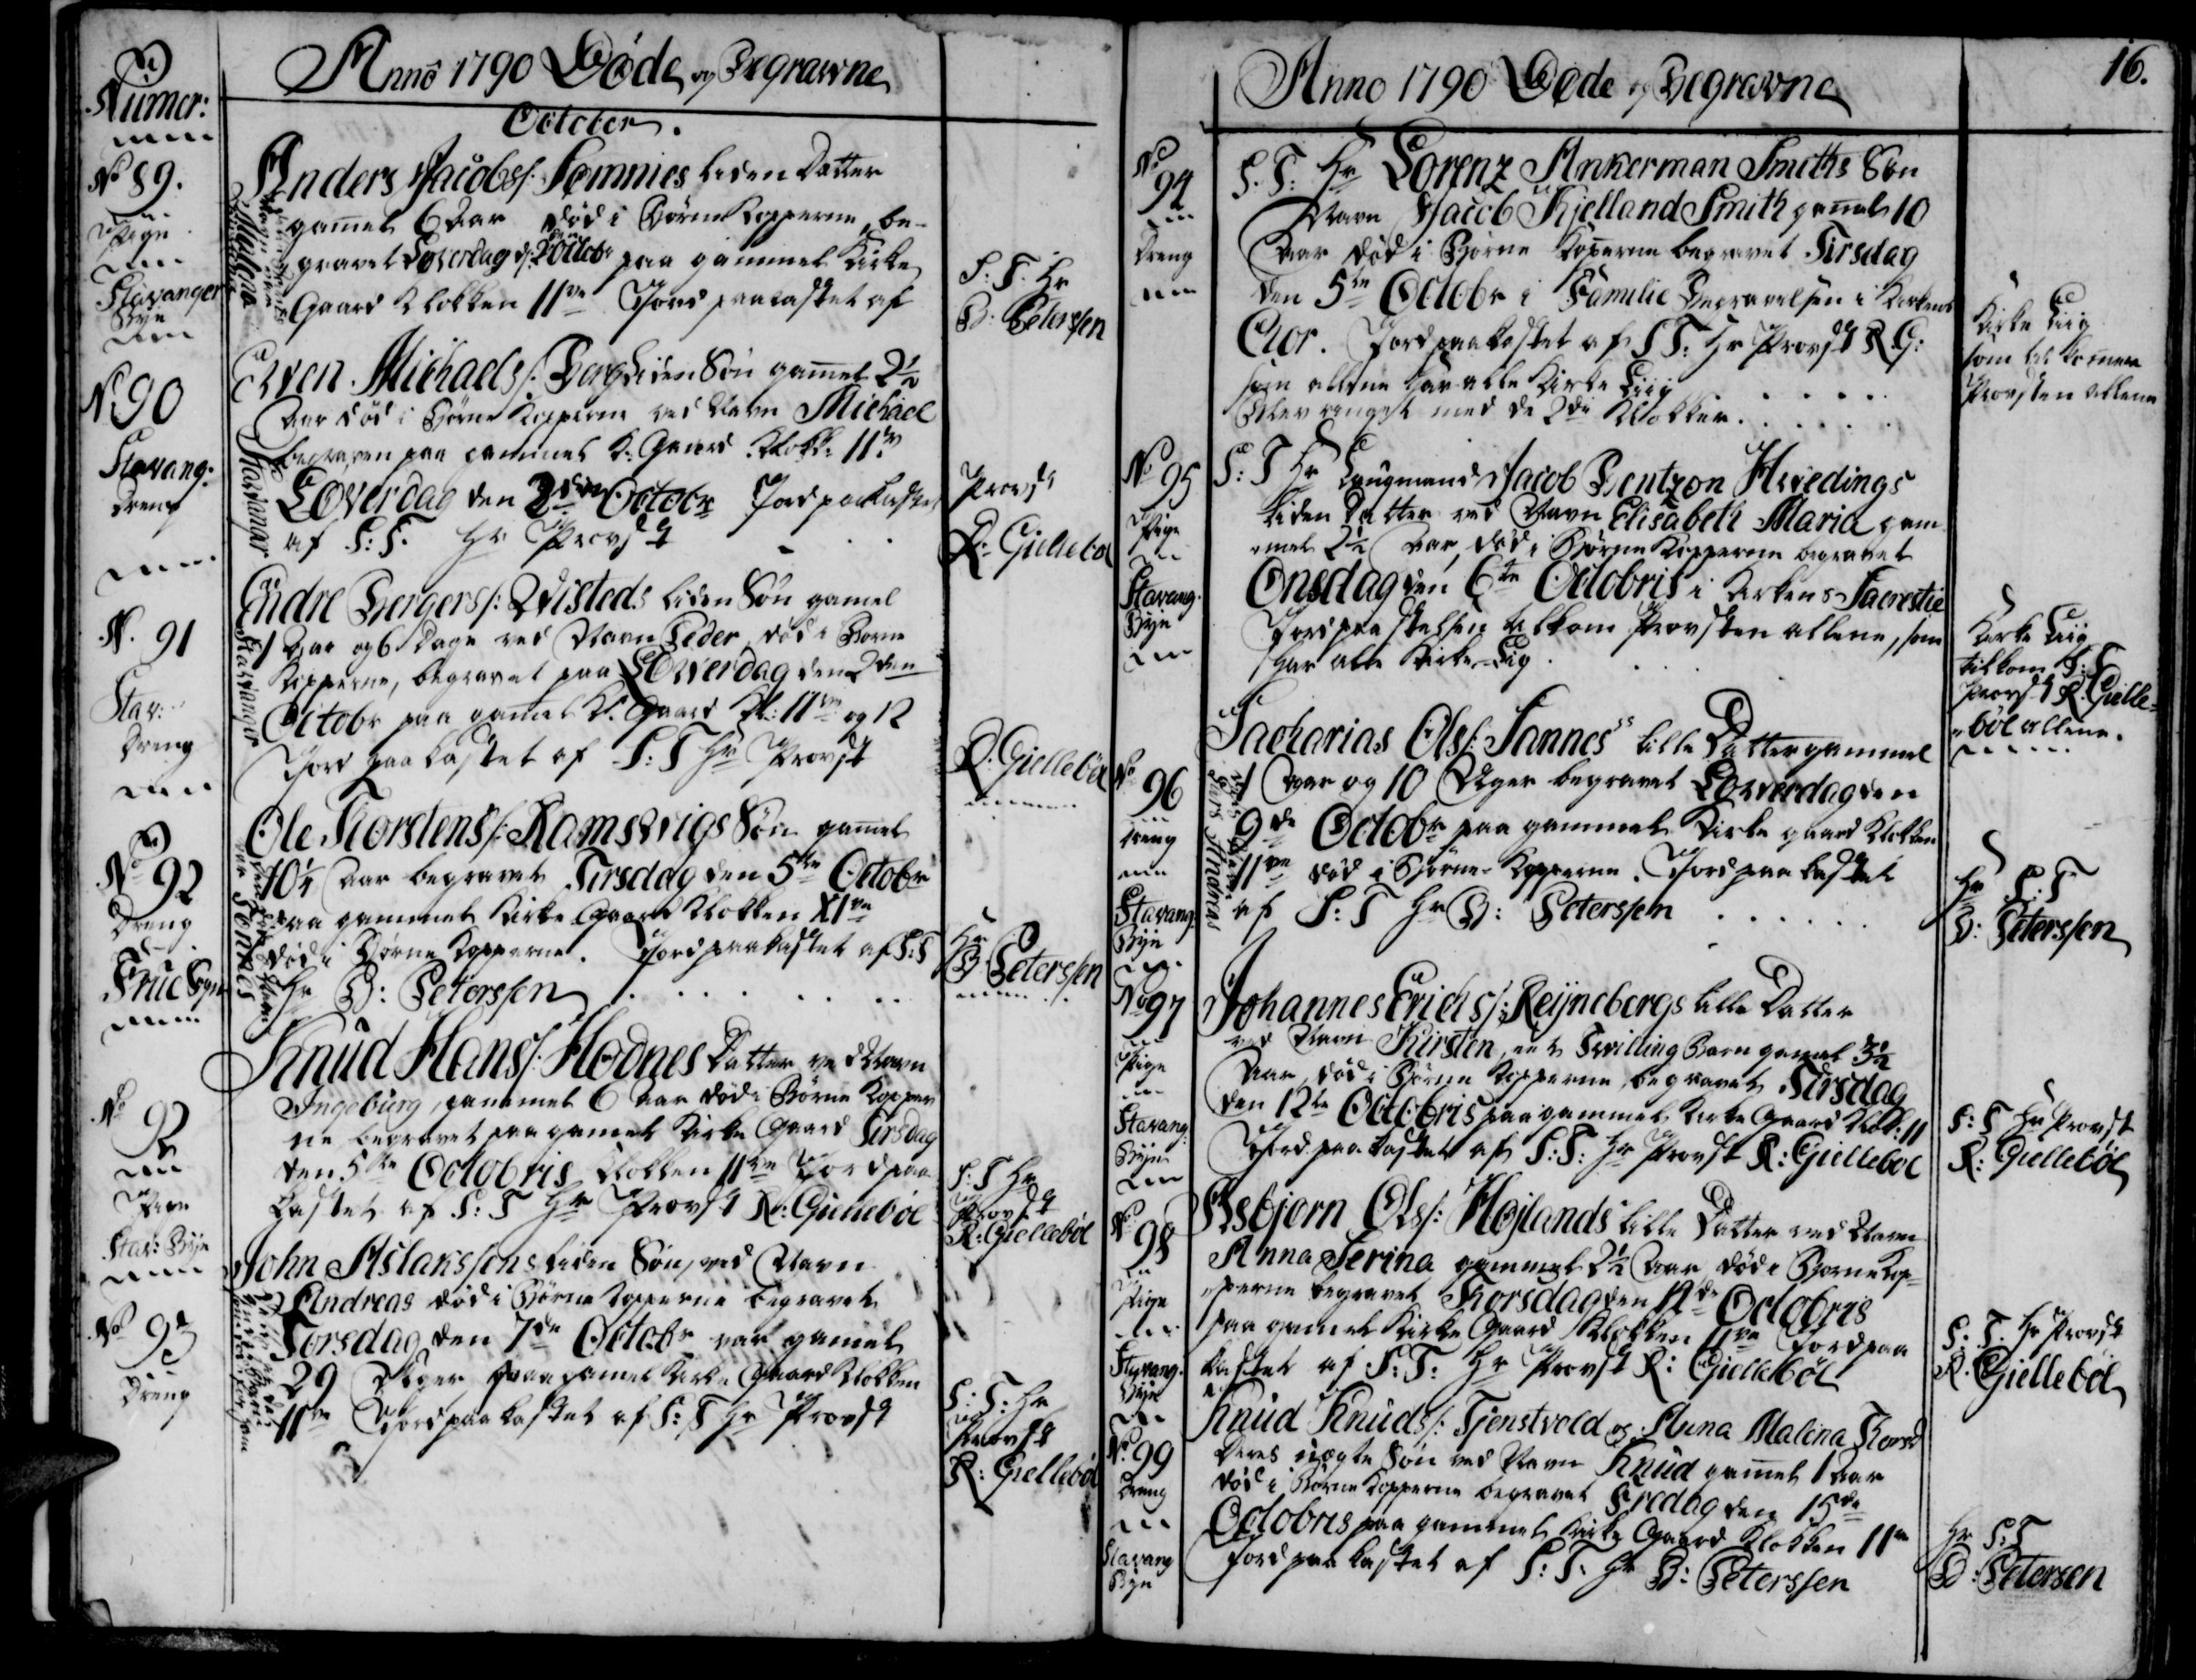 Numer:
Anno 1790 Døde og Begravne
October.
No 89.
Pige
Stavanger
Bye
Anders Jacobs/: Sømmes liden Datter
Malena
gamel 6 Aar død i Børne Kopperne, be-
gravet Løverdag d: 2 Octobr paa gammel Kirke
Gaard Klokken 11ve Jord paakastet af
S: T. Hr
B: Peterssen
No 90
Stavang:
Dreng
Erven Michaels/: Berg Liden Søn gamel 2½
Aar død i Børne Kopperne ved Navn Michael
begraven paa gammel K: Gaard Klokk: 11ve
Løverdag den 2den Octobr Jord paakastet
af S: T. Hr Provst
Provst
R: Giellebøl
N. 91
Stav:
Dreng
Stavanger
Endre Bergers/: Qvisteds liden Søn gamel
1 Aar og 6 Dage ved Navn Peder, død i Børne
Kopperne, begravet paa Løverdag den 2den
Octobr paa gamel K. Gaard Kl: 11ve og 12
Jord paakastet af S: T Hr Provst
R: Giellebøl
No 92
Dreng
Frue Bye
Ole Thorstens/: Ramsvigs Søn gamel
10¼ Aar begravet Tirsdag den 5te Octobr
paa gammel Kirke Gaard Klokken XIve
død i Børne Kopperne. Jord paakastet af S: T
Hr B: Peterssen
Hr
B: Peterssen
No 92
Pige
Stav: Bye
Knud Hans/: Hodnes Datter ved Navn
Ingeburg, gammel 6 Aar død i Børne Kopper
ne begravet paa gamel Kirke Gaard Tirsdag
den 5te Octobris Klokken 11ve Jord paa
kastet af S: T Hr Provst R: Giellebøl
S: T Hr
Provst
R: Giellebøl
No 93
Dreng
John Aslakssøns liden Søn, ved Navn
Andreas død i Børne Kopperne begravet
Torsdag den 7de Octobr var gamel
29 Uger paa gamel Kirke Gaard Klokken
11ve Jord paakastet af S: T Hr Provst
S: T: Hr
Provst
R: Giellebøl
Anno 1790 Døde og Begravne
16.
No 94
Dreng
S. T: Hr Lorenz Ankerman Smiths Søn
Navn Jacob Kjelland Smith gamel 10
Aar død i Børne Kopperne begravet Tirsdag
den 5te Octobr i Familie Begravelsen i Kirkens
Cior. Jord paakastet af S T: Hr Provst R. G:
som allene har alle Kirke Liig
Blev ringet med de 2de Klokker.
Kirke Liig
som till kommer
Provsten allene
No 95
Pige
Stavang.
Bye
S: T Hr Laugmand Jacob Bentzon Hvedings
liden Datter ved Navn Elisabeth Maria gam
mel 2½ Aar, død i Børne Kopperne begravet
Onsdag den 6te Octobris i Kirkens Sacrestie
Jordpaakastelsen tilkom Provsten allene, som
har alle Kirke-Lig.
Kirke Liig
tilkom S: T
Provst R. Gielle-
bøl allene.
No 96
Dreng
Stavang.
Bye
Sacharias Ols/: Sannes lille Datter gammel
1 Aar og 10 Uger begravet Løverdag den
9de Octobr paa gammel Kirke gaard Klokken
11ve død i Børne-Kopperne. Jord paa kastet
af S: T Hr B: Peterssen
Hr S: T
B: Peterssen
No 97
Pige
Stavang:
Bye
Johannes Erichs/: Reijnebergs lille Datter
ved Navn Kirsten, et Tvilling Barn gamel 3½
Aar, død i Børne Kopperne, begravet Tirsdag
den 12te Octobris paa gammel Kirke Gaard Klok: 11
Jord paakastet af S: T: Hr Provst R: Giellebøl
S: T Hr Provst
R: Giellebøl
No 98
Pige
Stavang.
Bye
Asbjorn Ols/: Højlands lille Datter ved Navn
Anna Serina gammel 2½ Aar død i Børne Kop-
perne begravet Torsdag den 12te Octobris
paa gamel Kirke Gaard Klokken 11ve Jord paa
kastet af S: T: Hr Provst R: Giellebøl
S: T. Hr Provst
R. Giellebøl
No 99
Dreng
Stavang
Bye
Knud Knuds/: Tjenstvold og Anna Malena Thorsd
Deres uægte Søn ved Navn Knud gamel 1 Aar
død i Børne Kopperne begravet Fredag den 15de
Octobris paa gammel Kirke Gaard Klokken 11ve
Jord paa kastet af S: T. Hr B: Peterssen
Hr S: T
B: Petersen